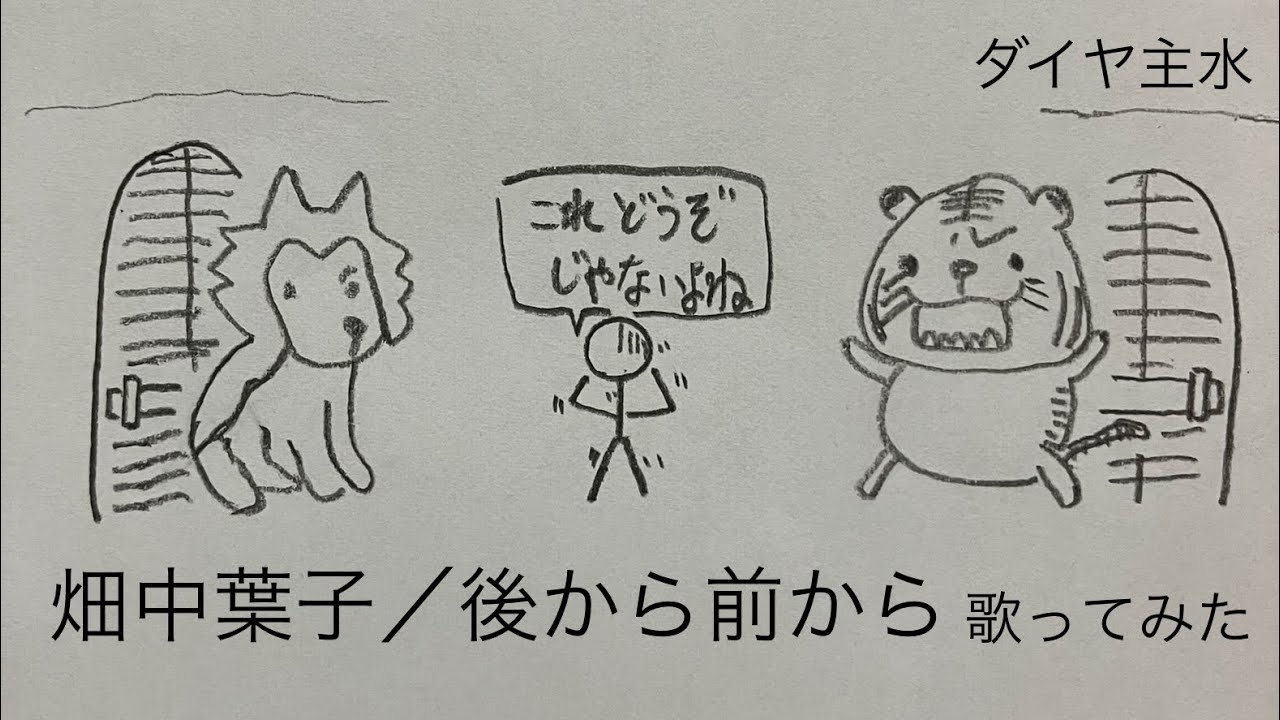 ダイヤ主水
これどうぞ
じゃないよね
畑中葉子／後から前から 歌ってみた